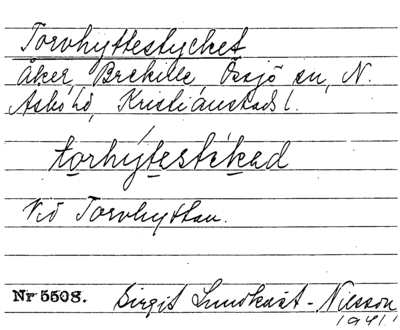 Torvhyttestycket
Åker, Brekille, Össjö sn, N.
Åsbo hd, Kristianstads l.
torhýtestékad
Vid Torvhyttan.
Nr 5508. Birgit Lundkvist-Nilsson
1941.